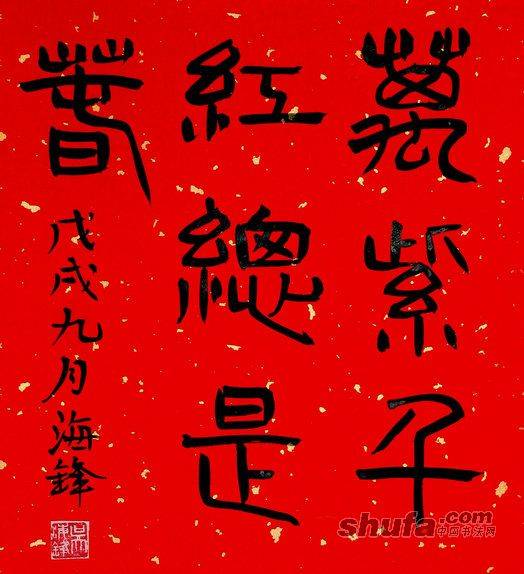 萬紫千
紅總是
春
戊戌九月海鋒
shufa.com
中国书法网